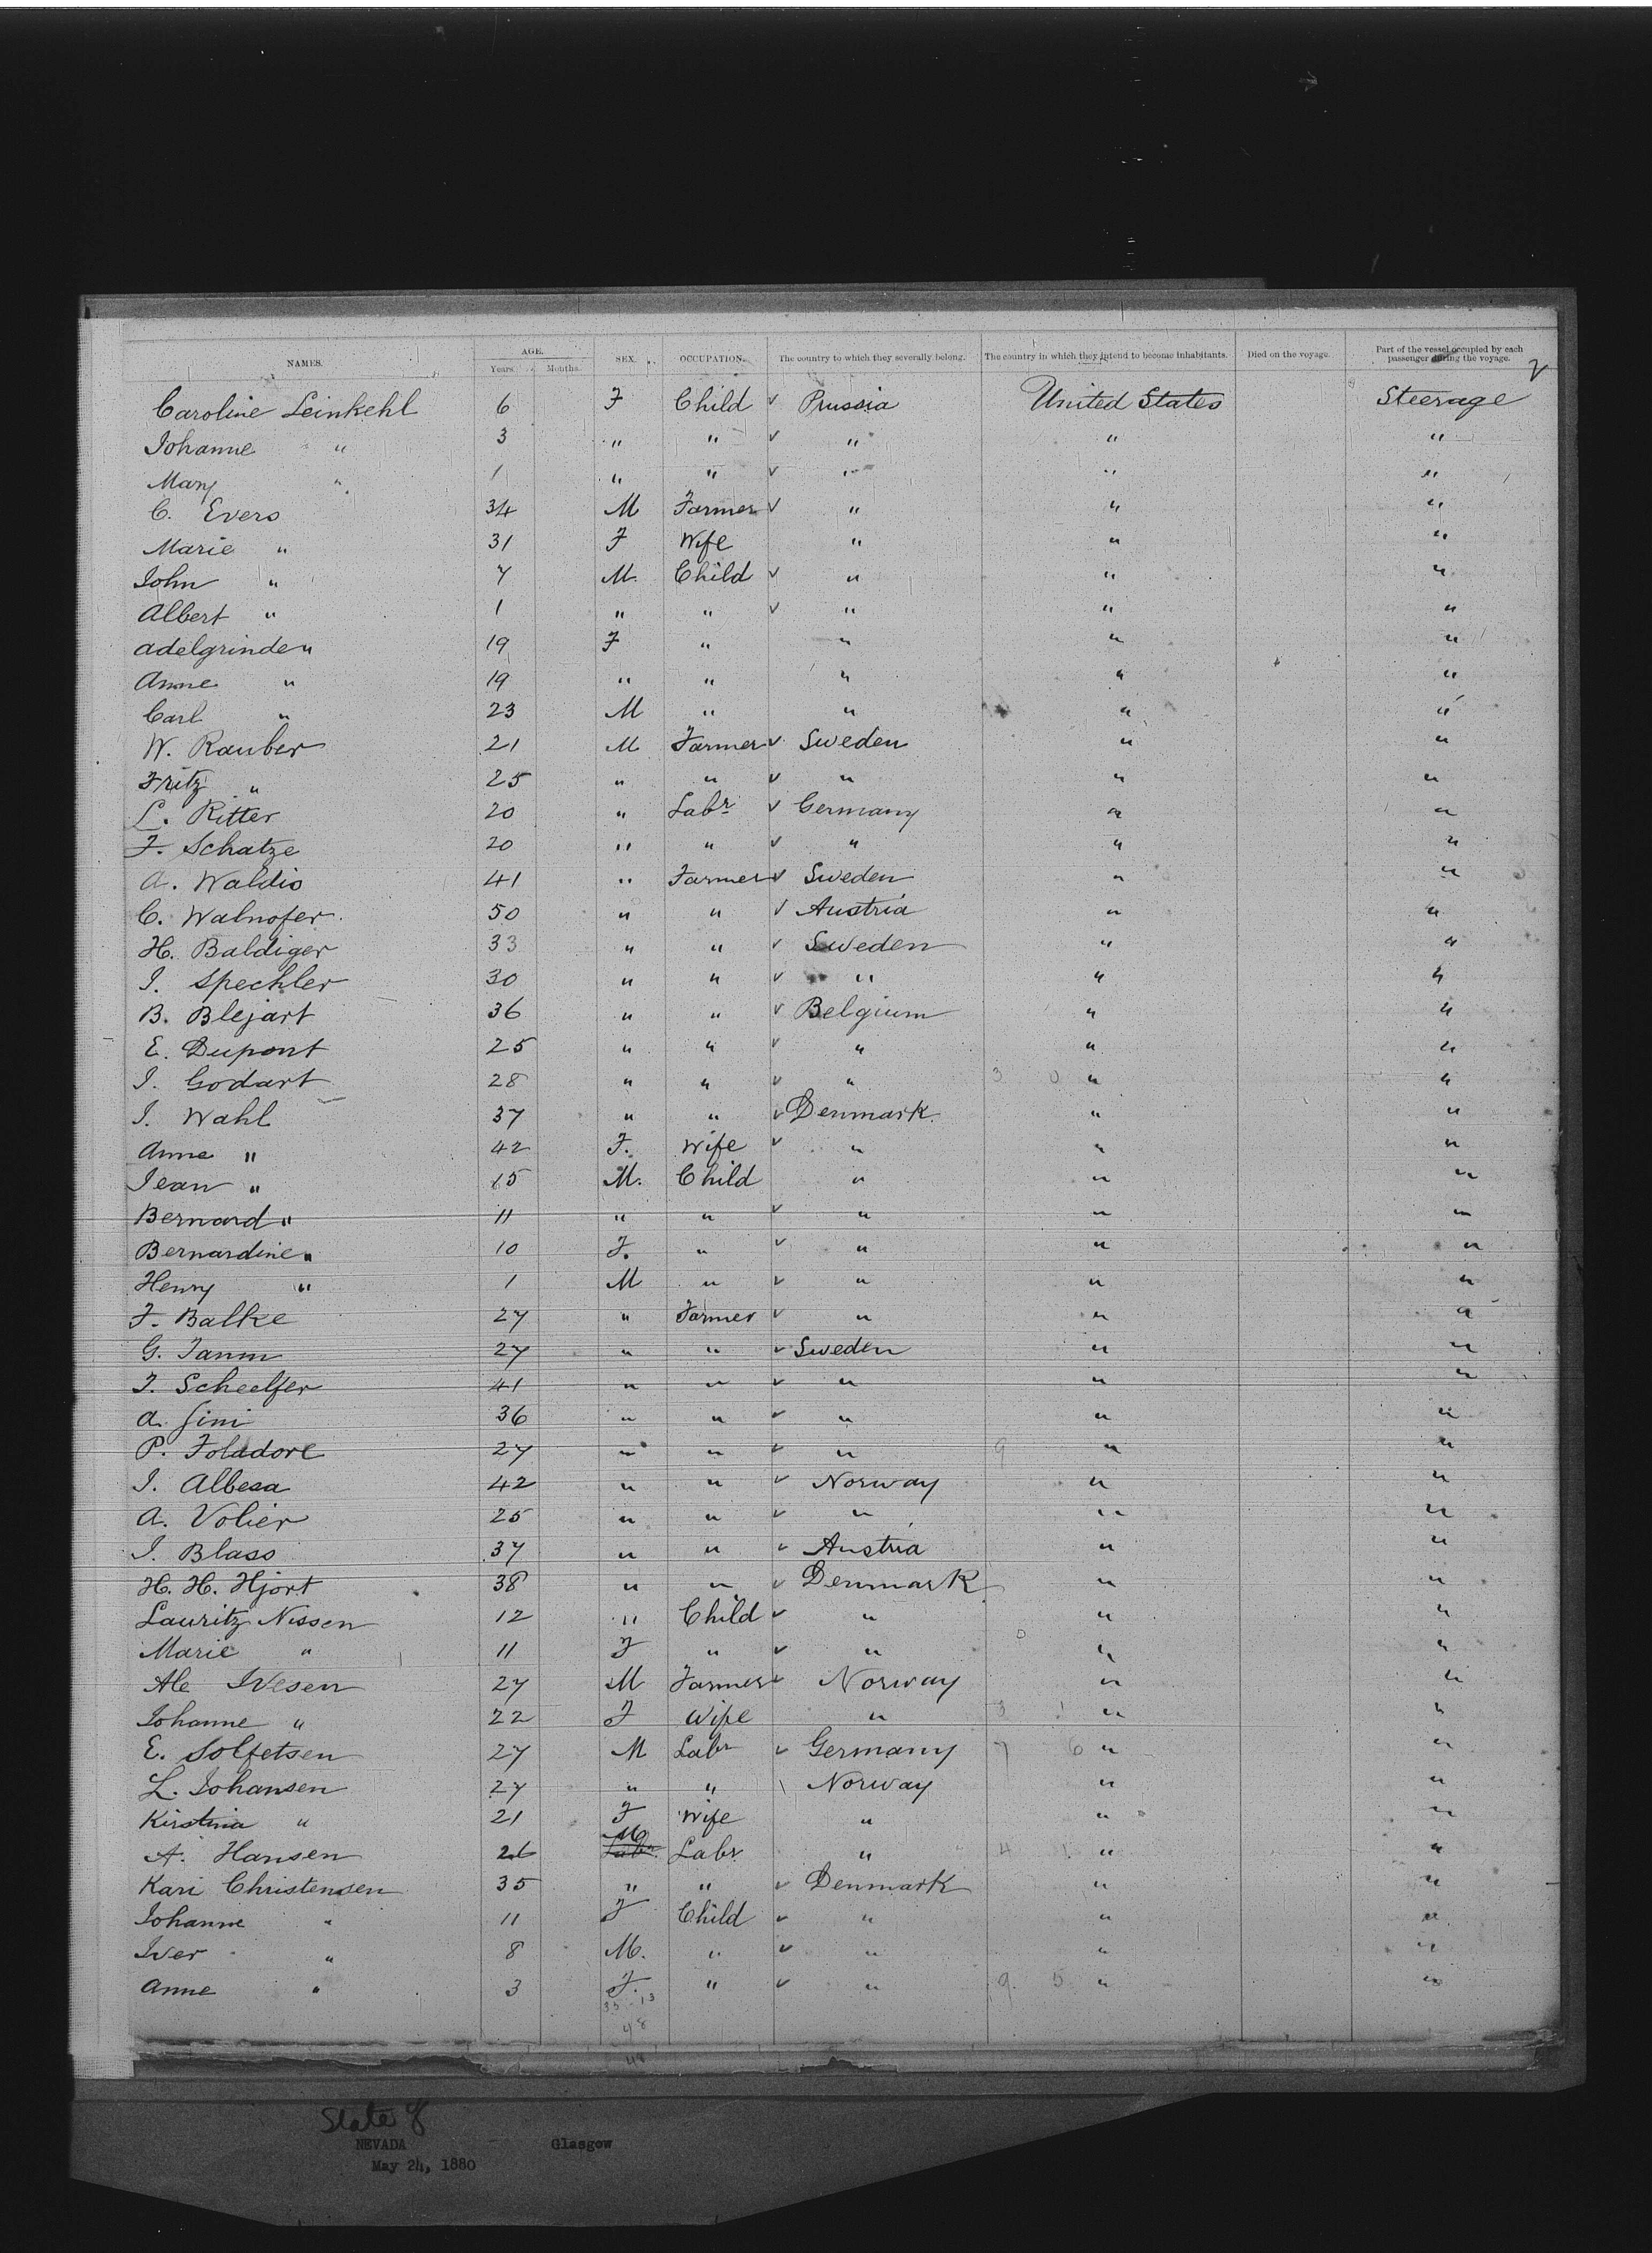 NAMES. AGE. Years. Months. SEX. OCCUPATION. The country to which they severally belong. The country in which they intend to become inhabitants. Died on the voyage. Part of the vessel occupied by each passenger during the voyage.
2
Caroline Leinkehl 6 F Child ✓ Prussia United States Steerage
Johanne " 3 " " ✓ " " "
Mary " 1 " " ✓ " " "
C. Evers 34 M Farmer ✓ " " "
Marie " 31 F Wife " " "
John " 7 M. Child ✓ " " "
Albert " 1 " " ✓ " " "
Adelgrinde " 19 F " " " "
Anne " 19 " " " " "
Carl " 23 M " " " "
W. Rauber 21 M Farmer ✓ Sweden " "
Fritz " 25 " " ✓ " " "
L. Ritter 20 " Labr ✓ Germany " "
F. Schatze 20 " " ✓ " " "
A. Waldis 41 " Farmer ✓ Sweden " "
C. Walnofer 50 " " ✓ Austria " "
H. Baldiger 33 " " ✓ Sweden " "
J. Spechler 30 " " ✓ " " "
B. Blejart 36 " " ✓ Belgium " "
E. Dupont 25 " " ✓ " " "
J. Godart 28 " " ✓ " " "
J. Wahl 37 " " ✓ Denmark " "
Anne " 42 F. Wife ✓ " " "
Jean " 15 M. Child " " "
Bernard " 11 " " ✓ " " "
Bernardine " 10 F. " ✓ " " "
Henry " 1 M " ✓ " " "
F. Balke 27 " Farmer ✓ " " "
G. Tanm 27 " " ✓ Sweden " "
J. Scheelfer 41 " " ✓ " " "
A. Jini 36 " " ✓ " " "
P. Foladore 27 " " ✓ " " "
J. Albesa 42 " " ✓ Norway " "
A. Volier 25 " " ✓ " " "
J. Blass 37 " " ✓ Austria " "
H. H. Hjort 38 " " ✓ Denmark " "
Lauritz Nissen 12 " Child ✓ " " "
Marie " 11 F " ✓ " " "
Ale Ivesen 27 M Farmer ✓ Norway " "
Johanne " 22 F Wife " " "
E. Solfetsen 27 M Labr ✓ Germany " "
L. Johansen 27 " " \ Norway " "
Kirstina " 21 F Wife " " "
A. Hansen 26 M Labr " " "
Kari Christensen 35 " " ✓ Denmark " "
Johanne " 11 F Child ✓ " " "
Iver " 8 M. " ✓ " " "
Anne " 3 F. " ✓ " " "
33-13
48
State of
NEVADA Glasgow
May 24, 1880